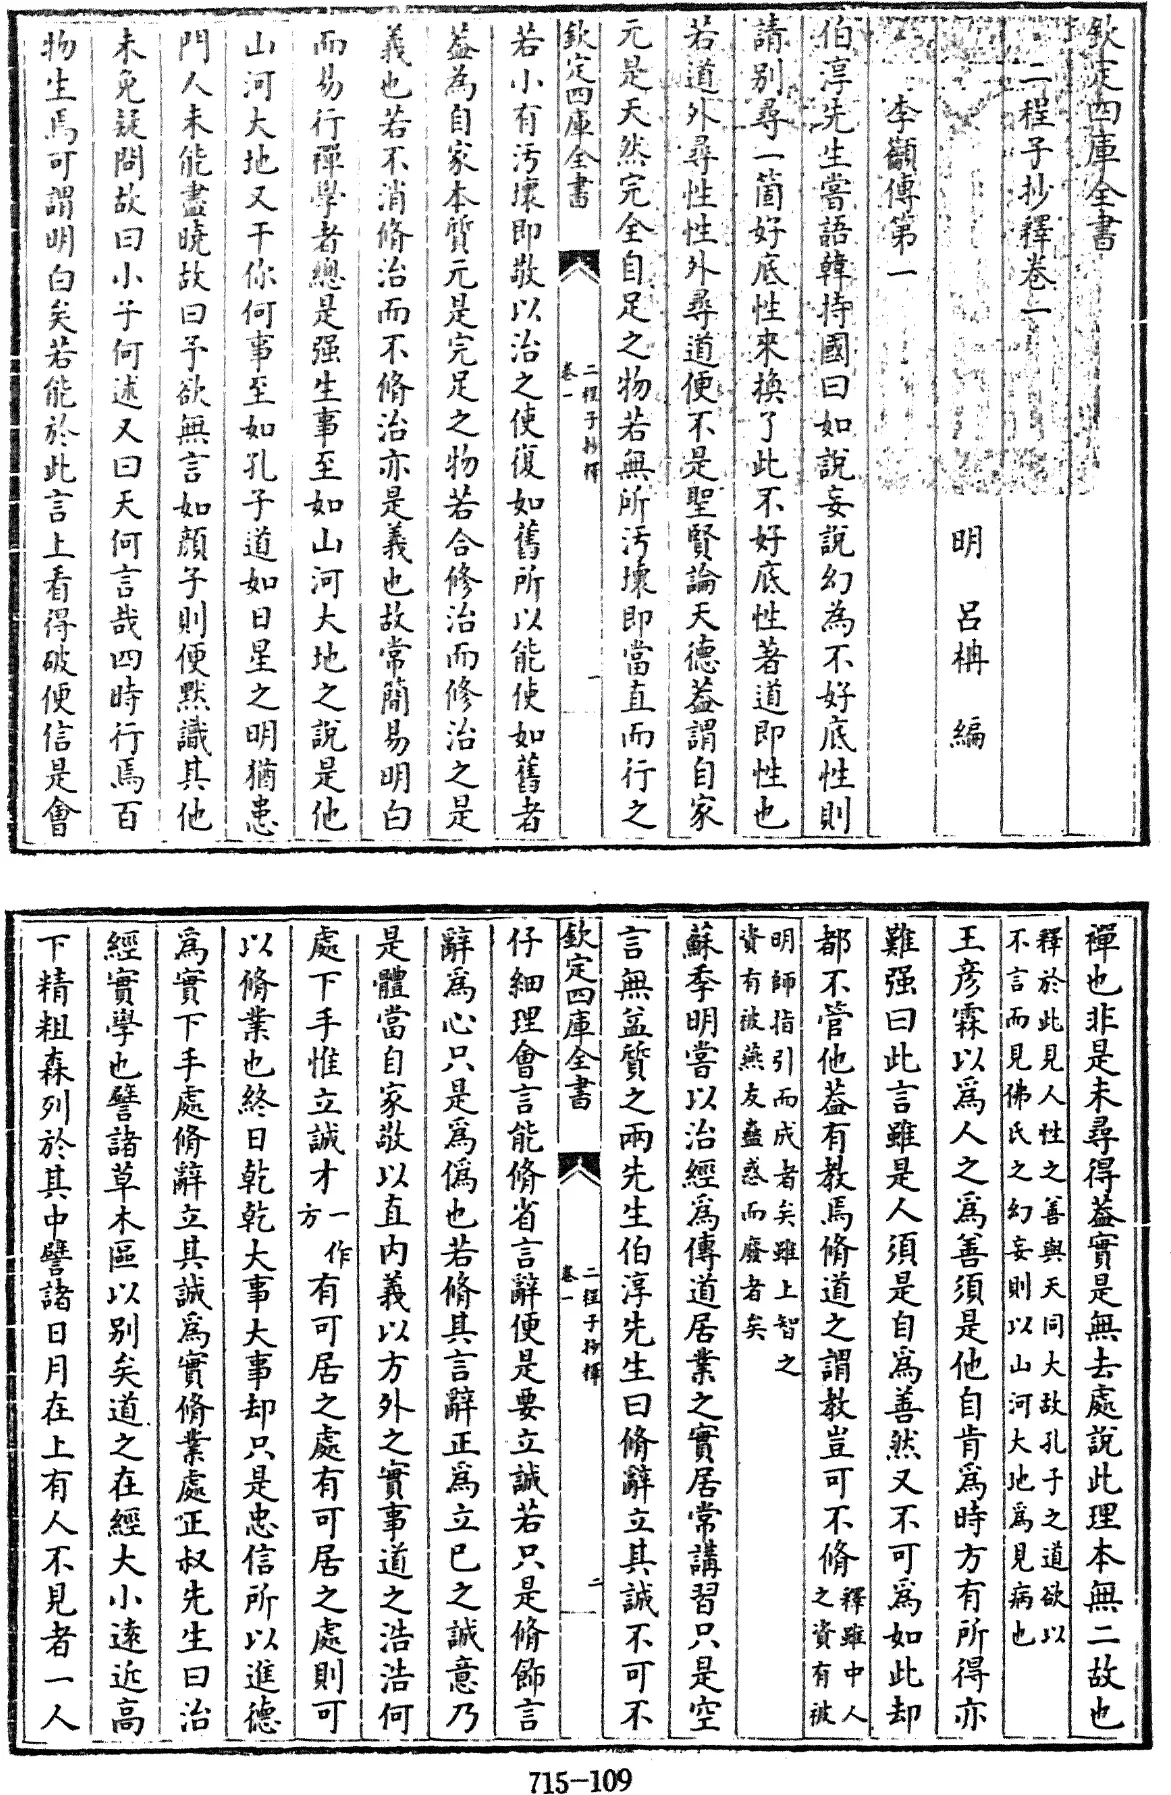 欽定四庫全書
二程子抄釋卷一
明　呂柟　編
李籲傳第一
伯淳先生嘗語韓持國曰如說妄說幻為不好底性則
請别尋一箇好底性來換了此不好底性著道即性也
若道外尋性性外尋道便不是聖賢論天德葢謂自家
元是天然完全自足之物若無所污壞即當直而行之
欽定四庫全書
二程子抄釋
卷一
一
若小有污壞即敬以治之使復如舊所以能使如舊者
葢為自家本質元是完足之物若合修治而修治之是
義也若不消脩治而不脩治亦是義也故常簡易明白
而易行禪學者總是强生事至如山河大地之說是他
山河大地又干你何事至如孔子道如日星之明猶患
門人未能盡曉故曰予欲無言如顔子則便默識其他
未免疑問故曰小子何述又曰天何言哉四時行焉百
物生焉可謂明白矣若能於此言上看得破便信是會
禪也非是未尋得葢實是無去處說此理本無二故也
釋於此見人性之善與天同大故孔子之道欲以
不言而見佛氏之幻妄則以山河大地爲見病也
王彦霖以爲人之爲善須是他自肯爲時方有所得亦
難强曰此言雖是人須是自爲善然又不可爲如此却
都不管他葢有教焉脩道之謂教豈可不脩釋雖中人
之資有被
明師指引而成者矣雖上智之
資有被燕友蠱惑而廢者矣
蘇季明嘗以治經爲傳道居業之實居常講習只是空
言無益質之兩先生伯淳先生曰脩辭立其誠不可不
欽定四庫全書
二程子抄釋
卷一
二
仔細理會言能脩省言辭便是要立誠若只是脩飾言
辭爲心只是爲僞也若脩其言辭正爲立已之誠意乃
是體當自家敬以直内義以方外之實事道之浩浩何
處下手惟立誠才一作方有可居之處有可居之處則可
以脩業也終日乾乾大事大事却只是忠信所以進德
爲實下手處脩辭立其誠爲實脩業處正叔先生曰治
經實學也譬諸草木區以别矣道之在經大小遠近高
下精粗森列於其中譬諸日月在上有人不見者一人
715-109